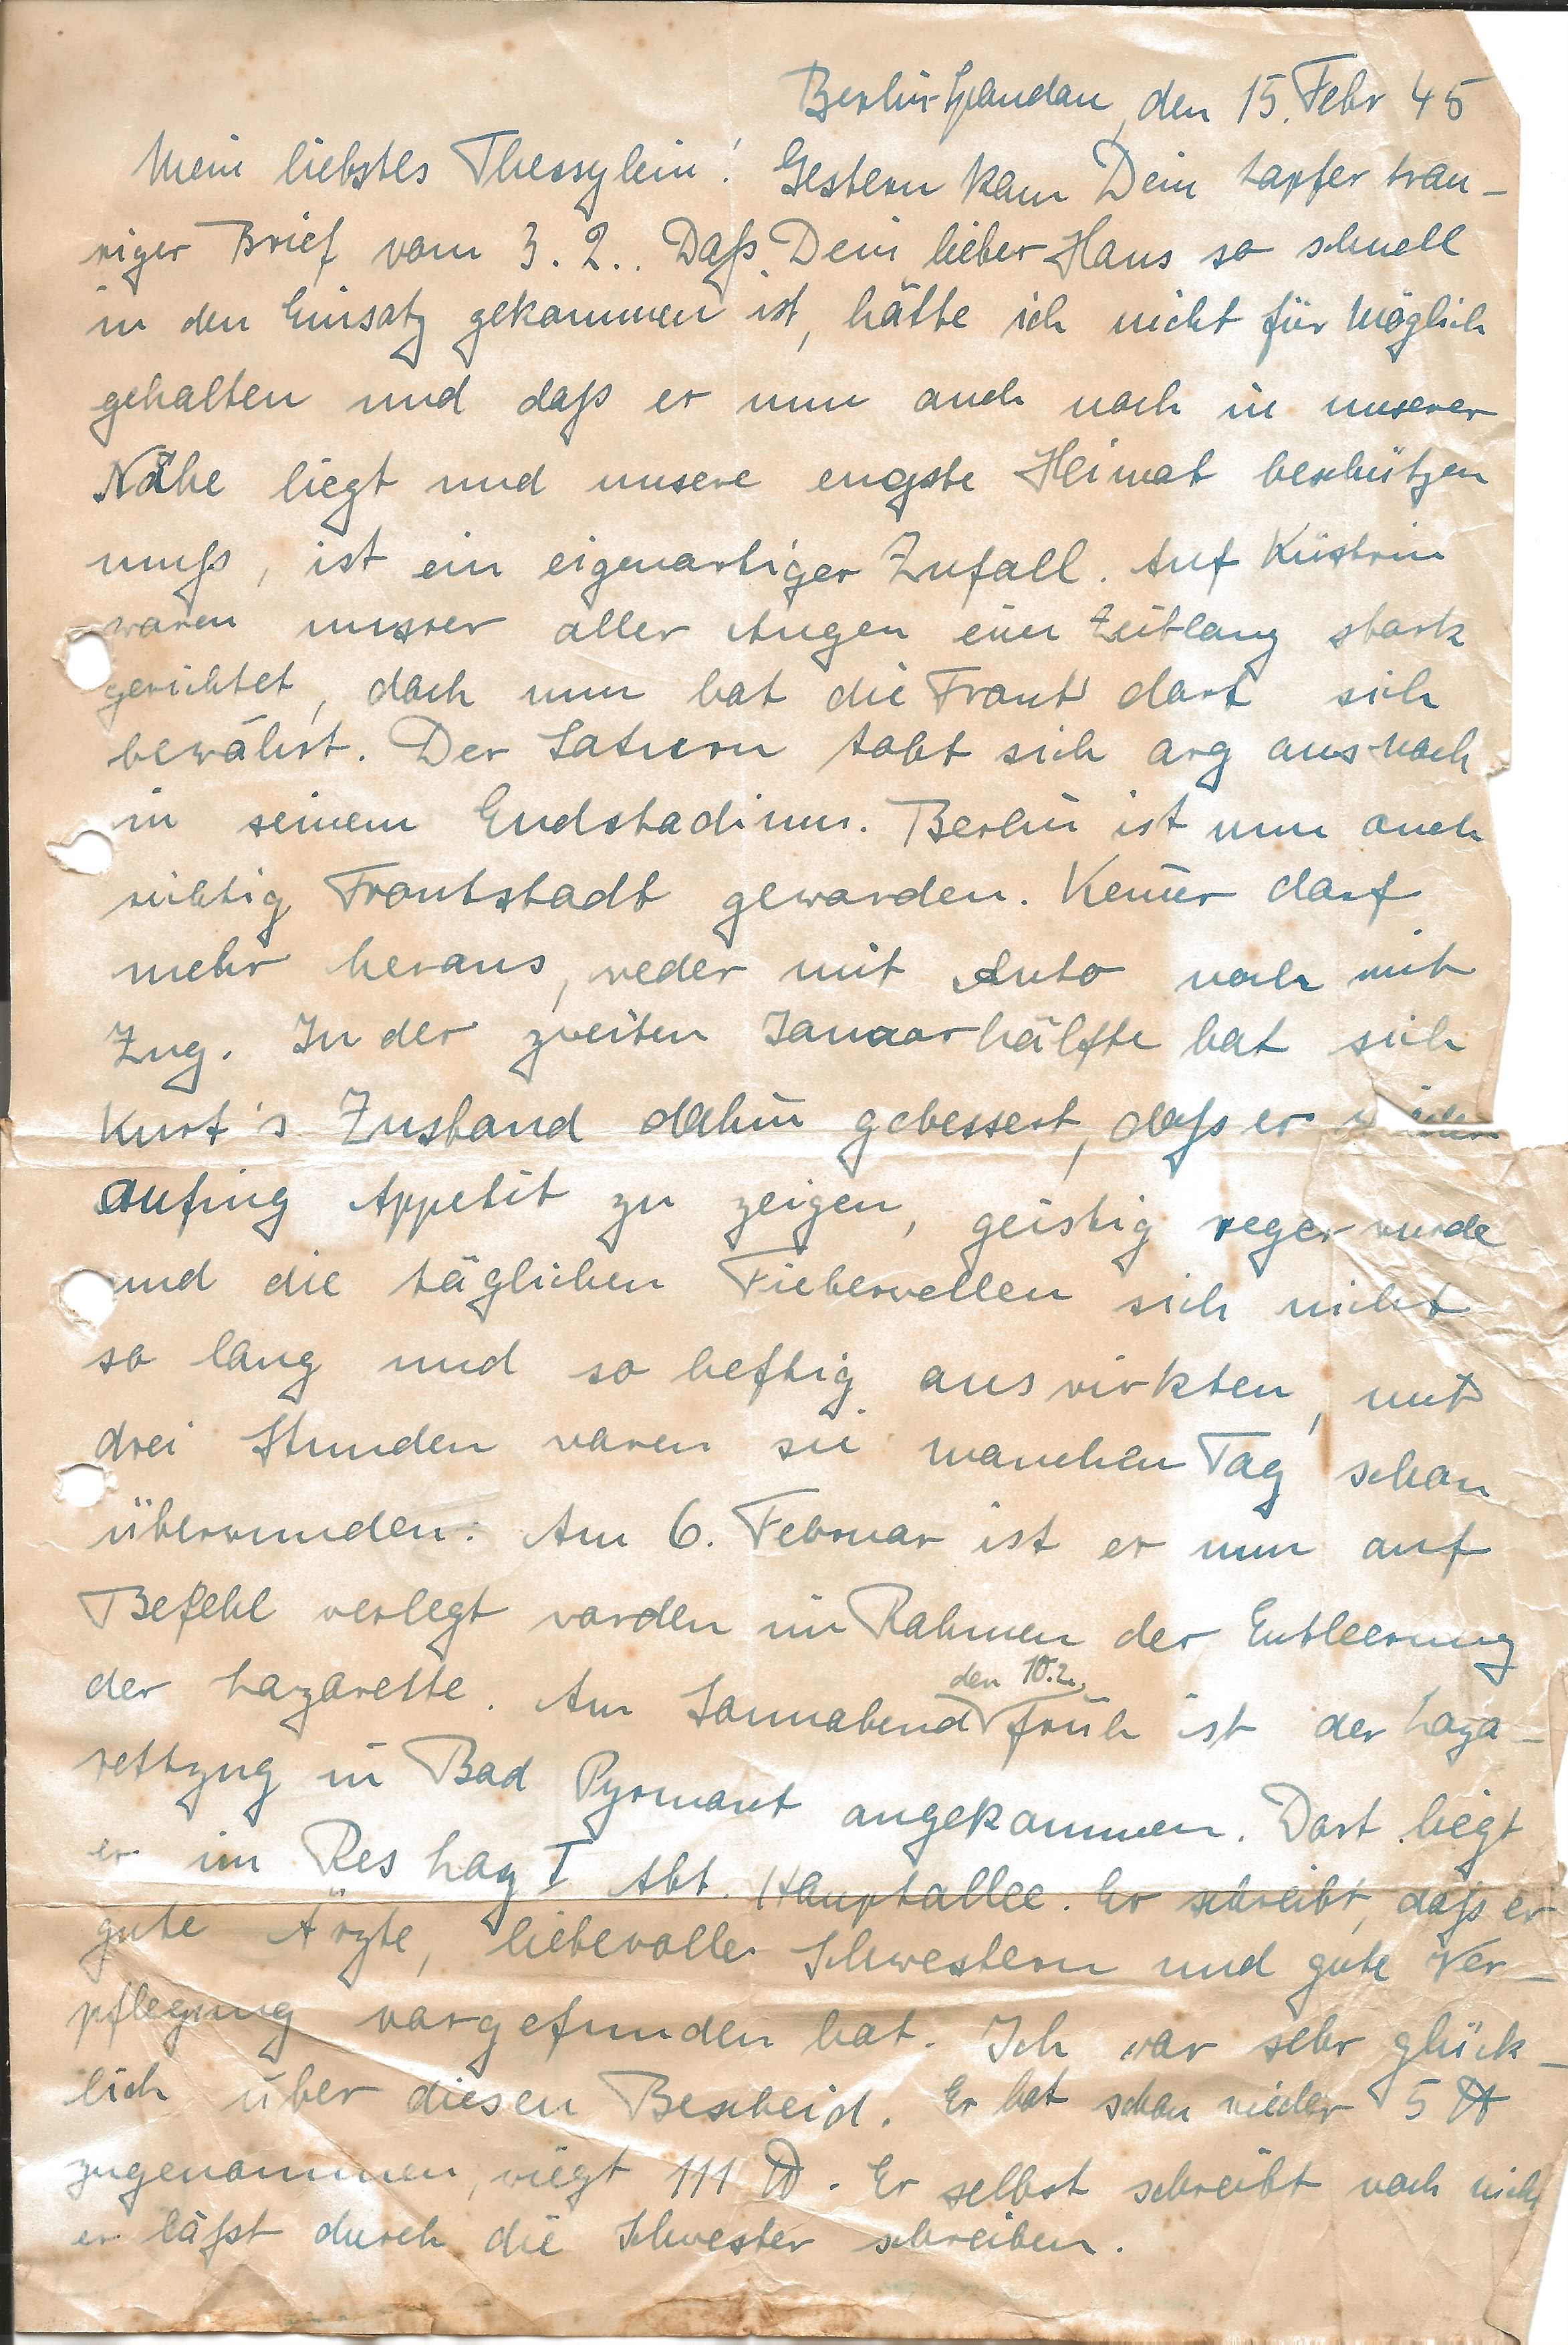 Berlin-Spandau, den 15. Febr 45
Mein liebstes Thessylein! Gestern kam Dein tapfer trau-
riger Brief vom 3. 2.. Daß Dein lieber Hans so schnell
in den Einsatz gekommen ist, hätte ich nicht für möglich
gehalten und daß er nun auch noch in unserer
Nähe liegt und unsere engste Heimat beschützen
muß, ist ein eigenartiger Zufall. Auf Küstrin
waren unsrer aller Augen eine Zeitlang stark
gerichtet, doch nun hat die Front dort sich
bewährt. Der tobt sich arg aus noch
in seinem Endstadium. Berlin ist nun auch
richtig Frontstadt geworden. Keiner darf
mehr heraus, weder mit Auto noch mit
Zug. In der zweiten Januarhälfte hat sich
Kurt's Zustand dahin gebessert, daß er wieder
anfing Appetit zu zeigen, geistig reger wurde
und die täglichen Fieberwellen sich nicht
so lang und so heftig auswirkten, mit
drei Stunden waren sie manchen Tag schon
überwunden. Am 6. Februar ist er nun auf
Befehl verlegt worden im Rahmen der Entleerung
der Lazarette. Am Sonnabend den 10.2. früh ist der Laza-
rettzug in Bad Pyrmont angekommen. Dort liegt
er im Res Laz I Abt. Hauptallee. Er schreibt, daß er
gute Ärzte, liebevolle Schwestern und gute Ver-
pflegung vorgefunden hat. Ich war sehr glück-
lich über diesen Bescheid. Er hat schon wieder 5 ℔
zugenommen, wiegt 111 ℔. Er selbst schreibt noch nicht
er läßt durch die Schwester schreiben.